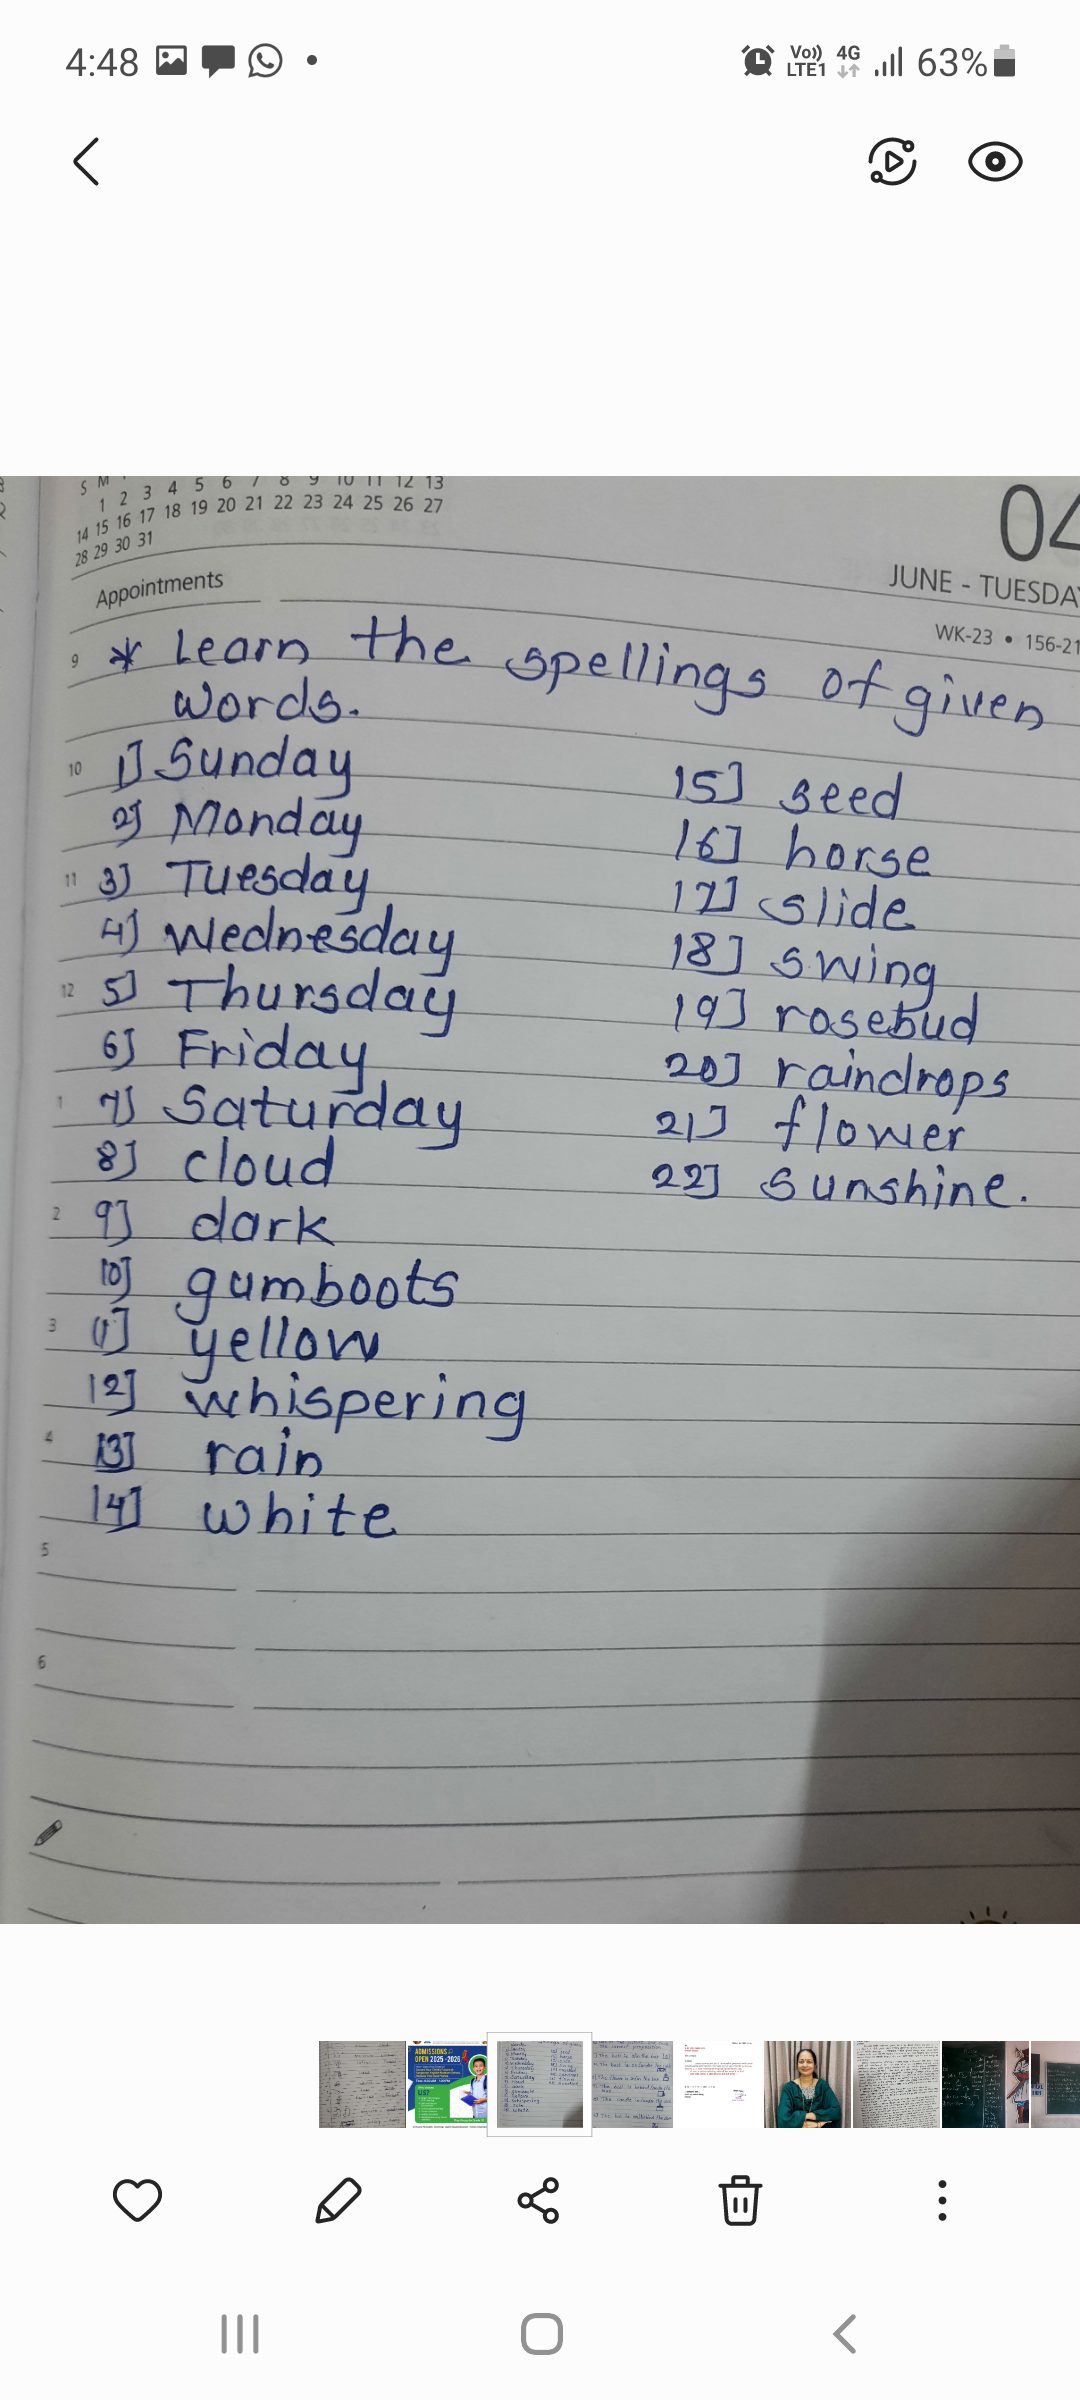 4:48
Vo)) LTE1 4G 63%
S M
7 8 9 10 11 12 13
1 2 3 4 5 6
14 15 16 17 18 19 20 21 22 23 24 25 26 27
28 29 30 31
04
JUNE - TUESDA
WK-23 • 156-21
Appointments
9 * Learn the spellings of given
words.
10 1] Sunday
2] Monday
11 3] Tuesday
4] Wednesday
12 5] Thursday
6] Friday
1 7] Saturday
8] cloud
2 9] dark
10] gumboots
3 11] yellow
12] whispering
4 13] rain
14] white
15] seed
16] horse
17] slide
18] swing
19] rosebud
20] raindrops
21] flower
22] sunshine.
5
6
ADMISSIONS
OPEN 2025-2026